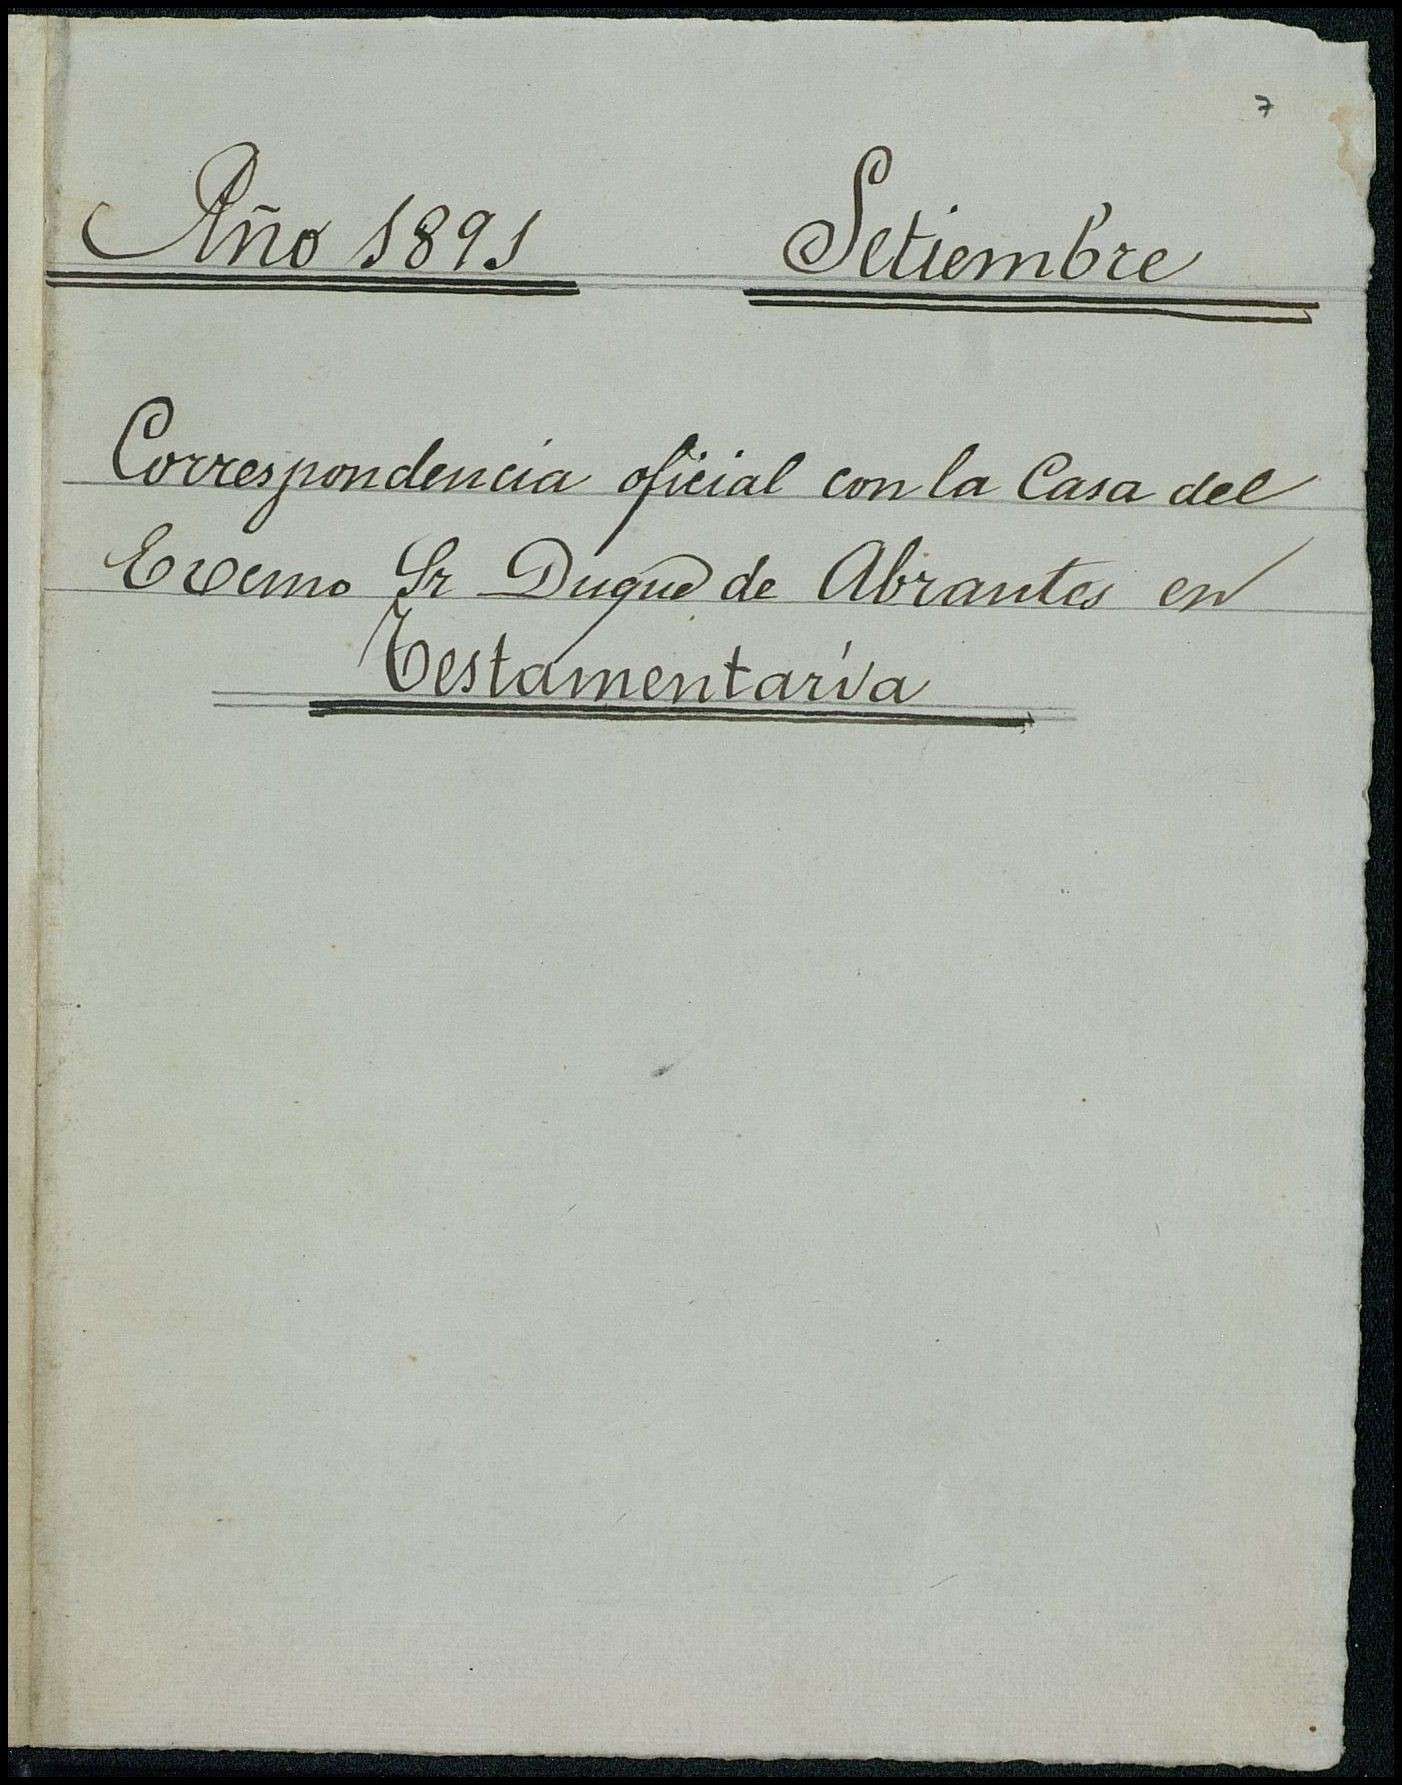 7
Año 1891 Setiembre
Correspondencia oficial con la Casa del
Excmo Sr Duque de Abrantes en
Testamentaría